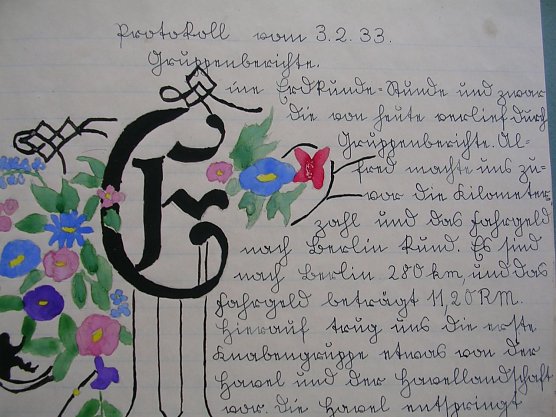 Protokoll vom 3.2.33.
Gruppenberichte.
Eine Erdkunde-Stunde und zwar
die von heute verlief durch
Gruppenberichte. Al-
fred machte uns zu-
vor die Kilometer-
zahl und das Fahrgeld
nach Berlin kund. Es sind
nach Berlin 280 km, und das
Fahrgeld beträgt 11,20 RM.
Hierauf trug uns die erste
Knabengruppe etwas von der
Havel und der Havellandschaft
vor. Die Havel entspringt